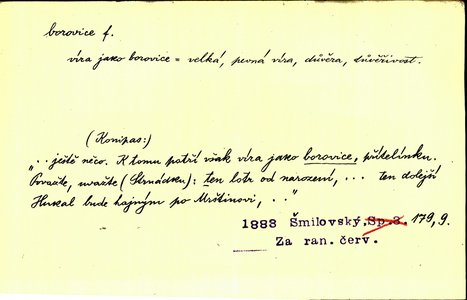 borovice f.
víra jako borovice = velká, pevná víra, důvěra, důvěřivost.
(Konipas:)
". . ještě něco. K tomu patří však víra jako borovice, přítelínku.
Považte, uvažte (Strnádku): ten lotr od narození, ... ten dolejší
Huskal bude hajným po Mrštinovi, . ."
1888 Šmilovský, Sp.3. 179, 9.
Za ran. červ.